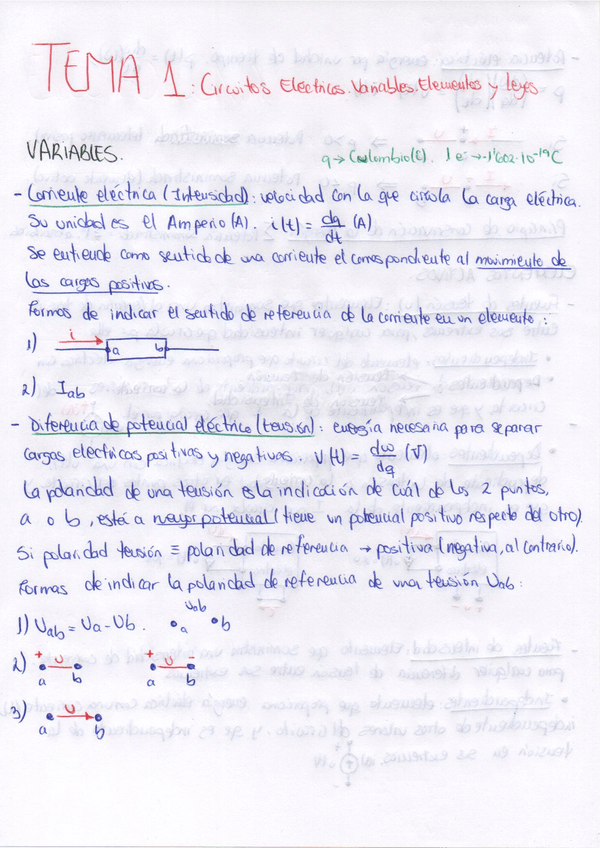 TEMA 1: Circuitos Eléctricos. Variables. Elementos y leyes
VARIABLES.
q → Coulombio(C). 1 e⁻ → -1'602·10⁻¹⁹C
- Corriente eléctrica (Intensidad): velocidad con la que circula la carga eléctrica.
Su unidad es el Amperio (A). i(t) = dq/dt (A)
Se entiende como sentido de una corriente el correspondiente al movimiento de
las cargas positivas.
Formas de indicar el sentido de referencia de la corriente en un elemento:
1) i a b
2) Iab
- Diferencia de potencial eléctrico (tensión): energía necesaria para separar
cargas eléctricas positivas y negativas. V(t) = dw/dq (V)
La polaridad de una tensión es la indicación de cuál de los 2 puntos,
a o b, está a mayor potencial (tiene un potencial positivo respecto del otro).
Si polaridad tensión ≡ polaridad de referencia → positiva (negativa, al contrario).
Formas de indicar la polaridad de referencia de una tensión Uab:
1) Uab = Ua - Ub. Uab a b
2) + U - a b + U - a b
3) U a b